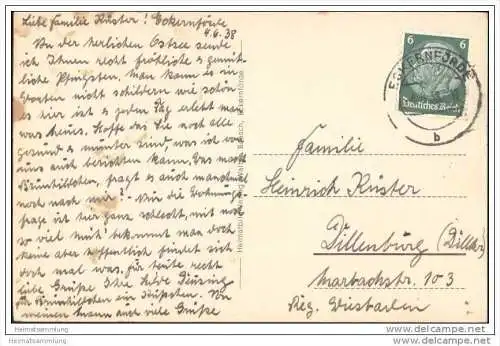 Liebe Familie Küster! Eckernförde
4.6.38
An der herrlichen Ostsee sende
ich Ihnen recht fröhliche & gemüt-
liche Pfingsten. Man kann es in
Worten nicht schildern wie schön
es hier ist & jeden Tag erlebt man
was neues. Hoffe das Sie noch alle
gesund & munter sind was ich von
uns auch berichten kann. Was macht
Brunhildchen, fragt es auch manchmal
noch nach mir? Nur die Wohnungs-
frage ist hier ganz schlecht, mit noch
so viel Müh' bekommt man doch
keine aber hoffentlich findet sich
doch mal was. Für heute recht
liebe Grüße Ihre Hilde
für Brunhildchen ein Küßchen. Von
meinem Mann auch viele Grüße
Familie
Heinrich Küster
Dillenburg (Dillkr.)
Marbachstr. 103
Reg. Wiesbaden
6 6
Deutsches Reich
ECKERNFÖRDE
b
Heimatsammlung
Heimatsammlung.de
http://www.delcampe.net